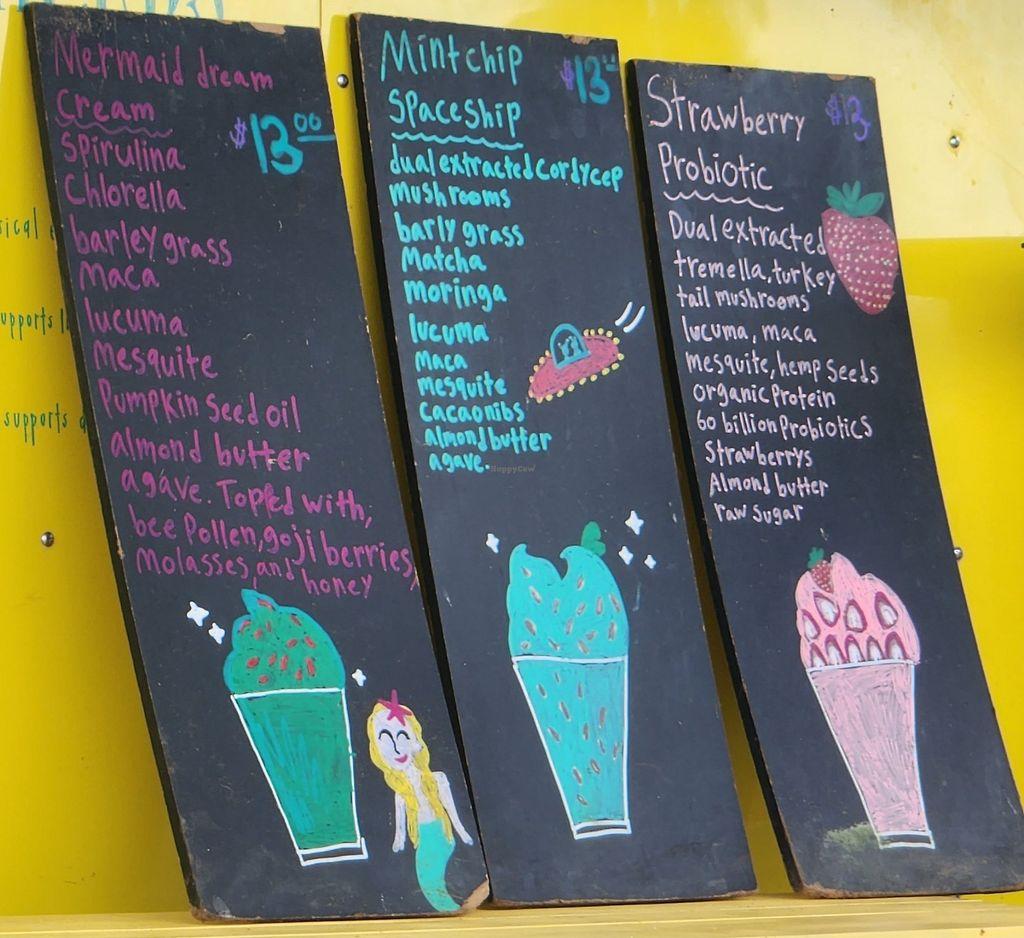 Mermaid dream
Cream
$13.00
Spirulina
Chlorella
barley grass
Maca
lucuma
Mesquite
Pumpkin Seed oil
almond butter
agave. Topped with,
bee Pollen, goji berries,
Molasses, and honey
Mint chip
$13
Spaceship
dual extracted Cordycep
mushrooms
barly grass
Matcha
moringa
lucuma
maca
mesquite
Cacao nibs
almond butter
agave.
HappyCow
Strawberry
$13
Probiotic
Dual extracted
tremella, turkey
tail mushrooms
lucuma, maca
mesquite, hemp Seeds
organic Protein
60 billion Probiotics
Strawberrys
Almond butter
raw sugar
supports